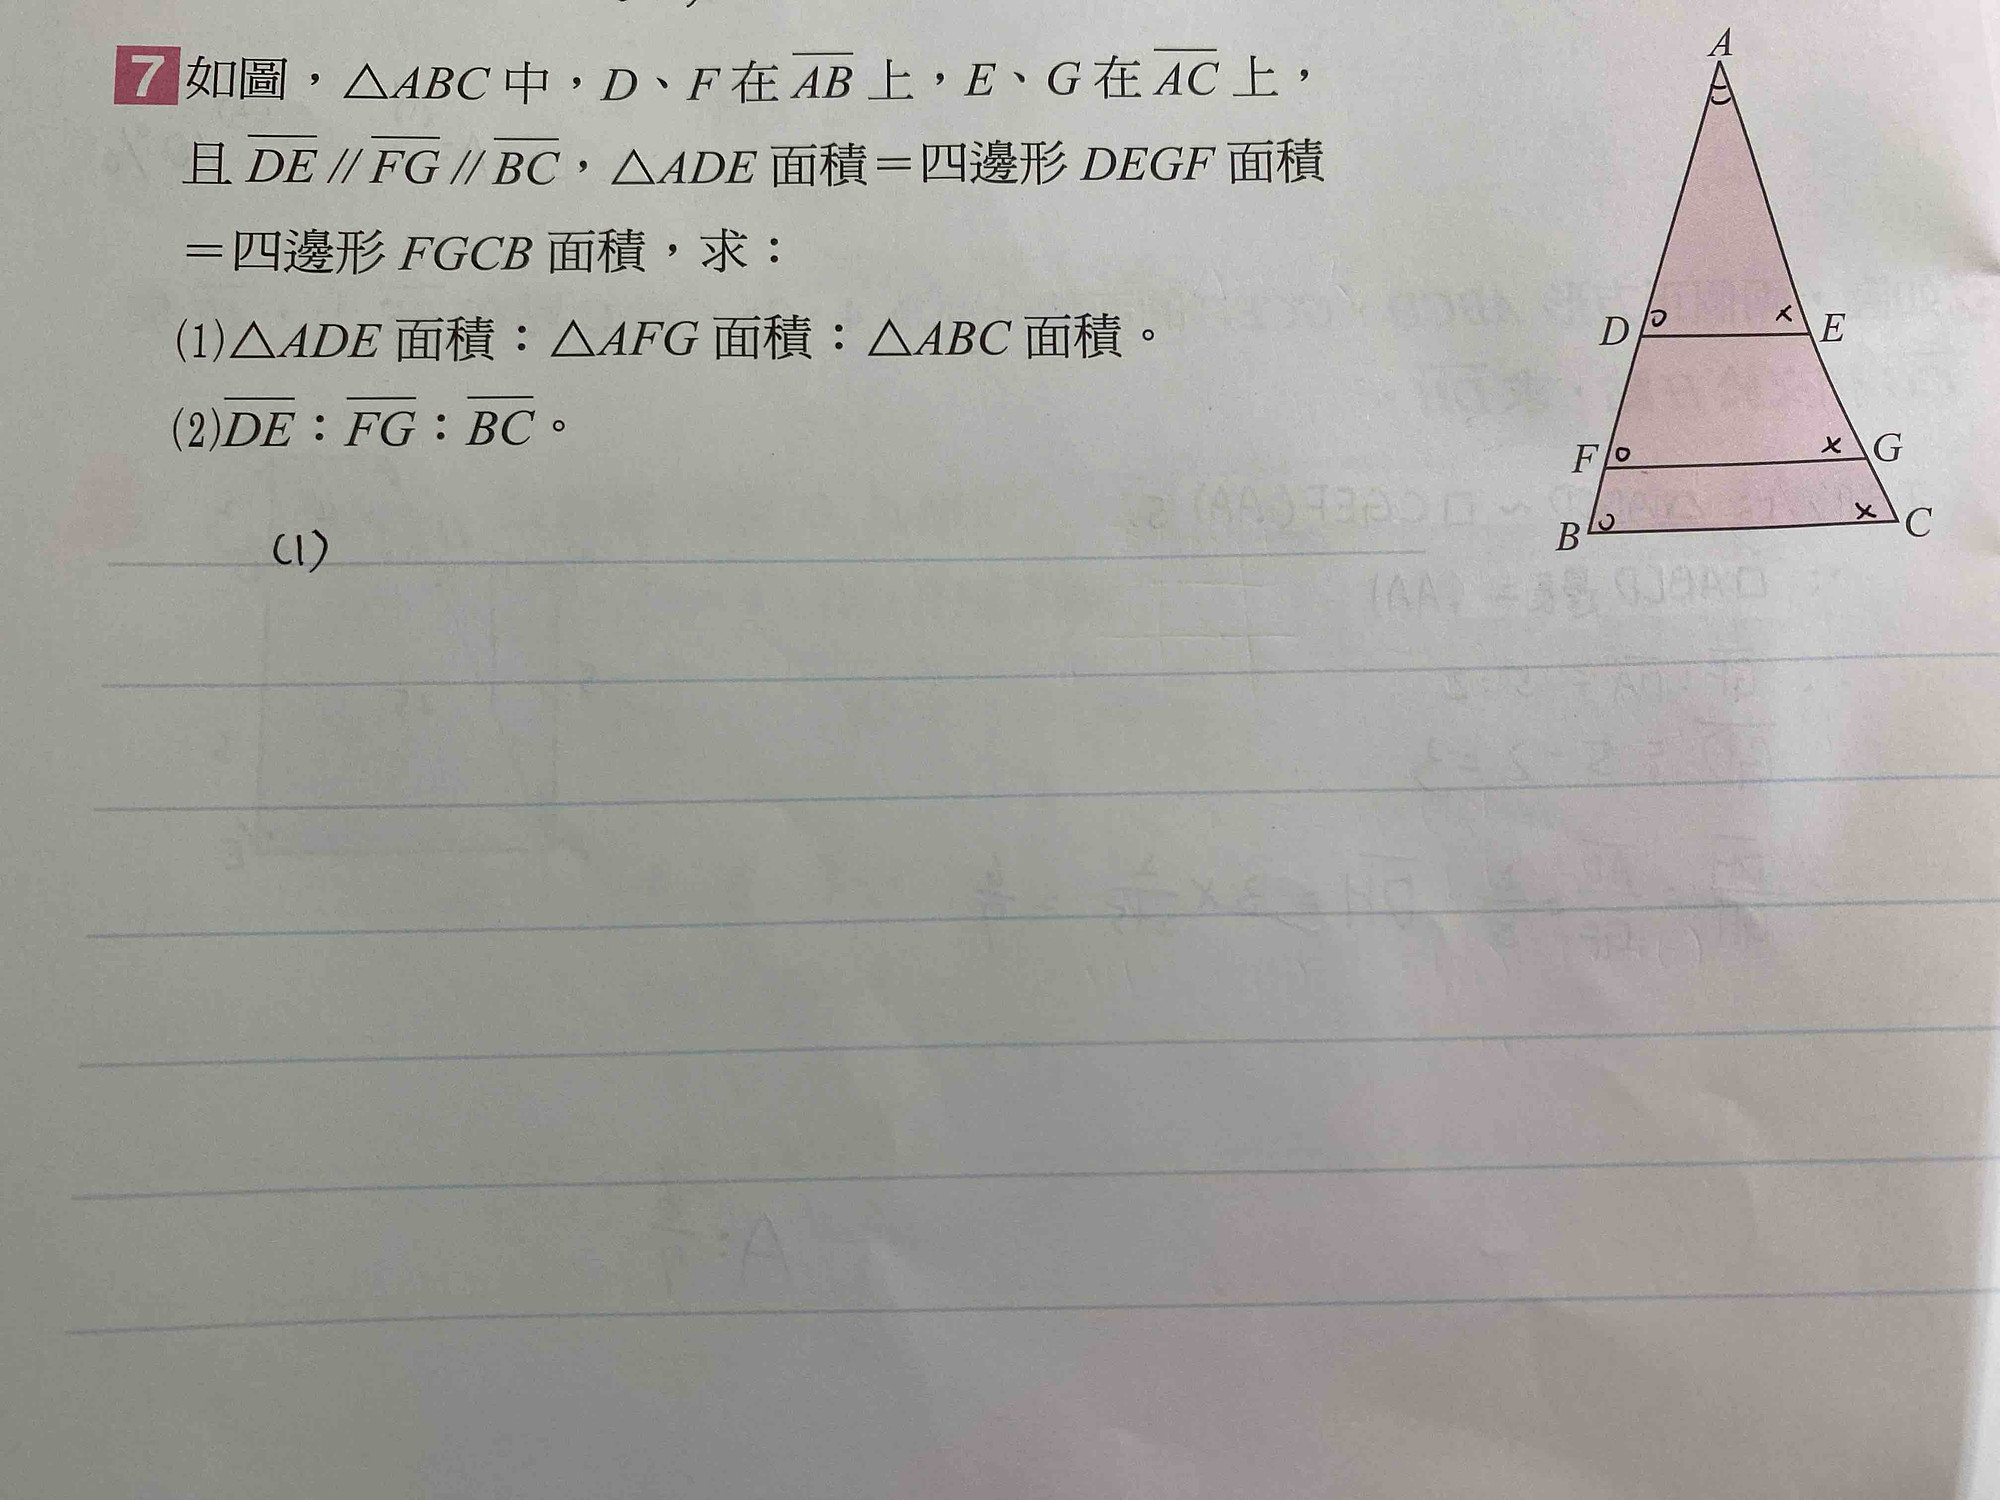 7 如圖，△ABC 中，D、F 在 AB 上，E、G 在 AC 上，
且 DE // FG // BC，△ADE 面積＝四邊形 DEGF 面積
＝四邊形 FGCB 面積，求：
(1)△ADE 面積：△AFG 面積：△ABC 面積。
(2)DE：FG：BC。
A
D
E
F
G
B
C
(1)